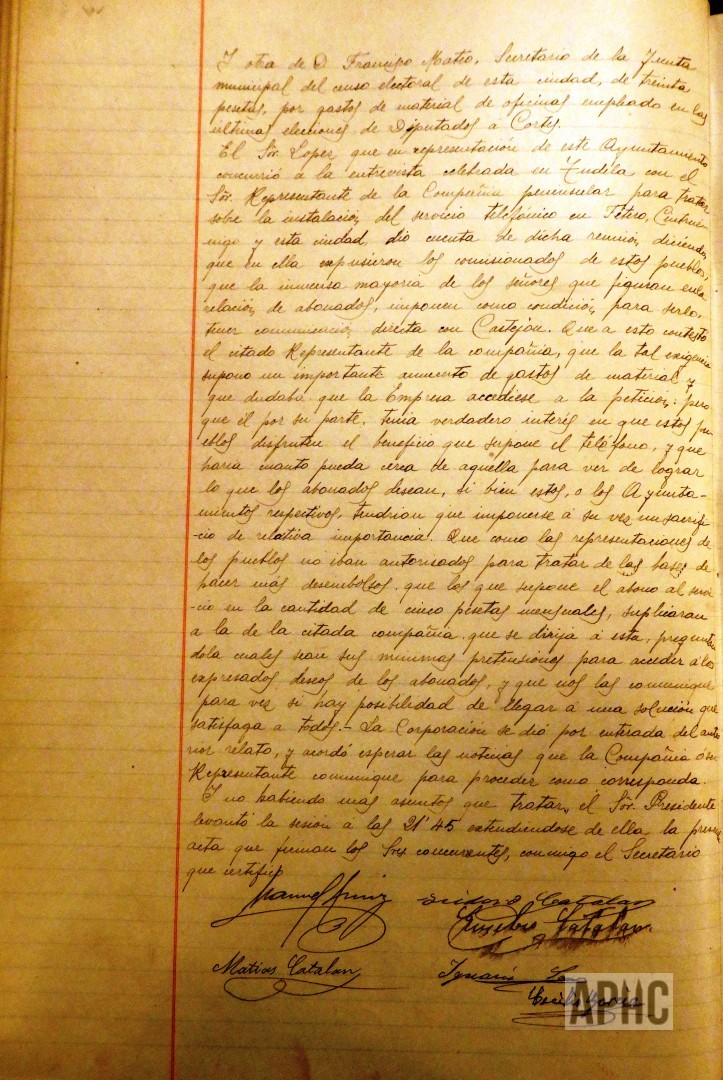 Y otra de D. Francisco Mateo, Secretario de la Junta
municipal del censo electoral de esta ciudad, de treinta
pesetas, por gastos de material de oficinas empleado en las
últimas elecciones de Diputados a Cortes.
El Sor. Lopez, que en representación de este Ayuntamiento
concurrió a la entrevista celebrada en Tudela con el
Sor. Representante de la Compañia peninsular para tratar
sobe la instalación del servicio telefónico en Fitero, Cintrué-
nigo y esta ciudad, dio cuenta de dicha reunión, diciendo,
que en ella expusieron los comisionados de estos pueblos,
que la inmensa mayoria de los señores que figuran en la
relación de abonados, imponen como condición para serlo,
tener comunicación directa con Castejón. Que a esto contestó
el citado Representante de la compañia, que la tal exigencia
supone un importante aumento de gastos de material y
que dudaba que la Empresa accediese a la petición; pero
que él por su parte, tenia verdadero interés en que estos pu-
eblos disfruten el beneficio que supone el teléfono, y que
haria cuanto pueda cerca de aquella para ver de lograr
lo que los abonados desean, si bien estos, o los Ayunta-
mientos respectivos, tendrian que imponerse á su vez un sacrifi-
-cio de relativa importancia. Que como las representaciones de
los pueblos no iban autorizados para tratar de las bases de
hacer más desembolsos que los que supone el abono al servi-
-cio en la cantidad de cinco pesetas mensuales, suplicaran
a la de la citada compañia que se dirija á esta, preguntan
dola cuales sean sus minimas pretensiones para acceder á los
expresados deseos de los abonados, y que nos las comunique
para ver si hay posibilidad de llegar á una solución que
satisfaga a todos.- La Corporación se dió por enterada del ante
rior relato, y acordó esperar las noticias que la Compañia o su
Representante comunique para proceder como corresponda.
Y no habiendo más asuntos que tratar, el Sor. Presidente
levantó la sesión á las 21'45 extendiéndose de ella la presente
acta que firman los Sres concurrentes, conmigo el Secretario
que certifico
Isidoro Catalan
Eusebio Catalan
Matias Catalan
Ignacio
APHC